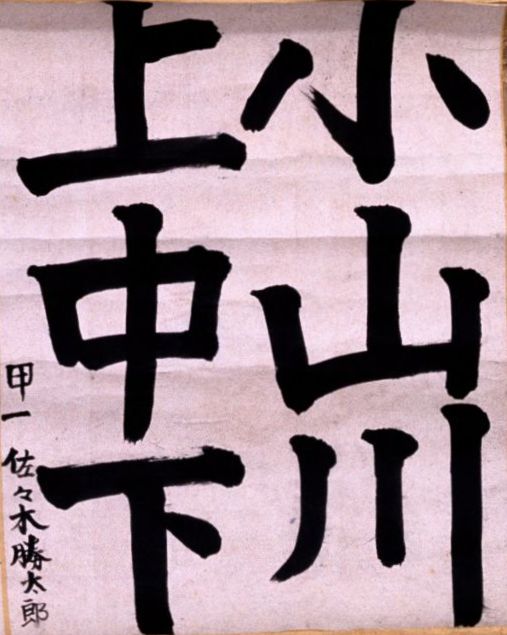 小山川
上中下
甲一 佐々木勝太郎